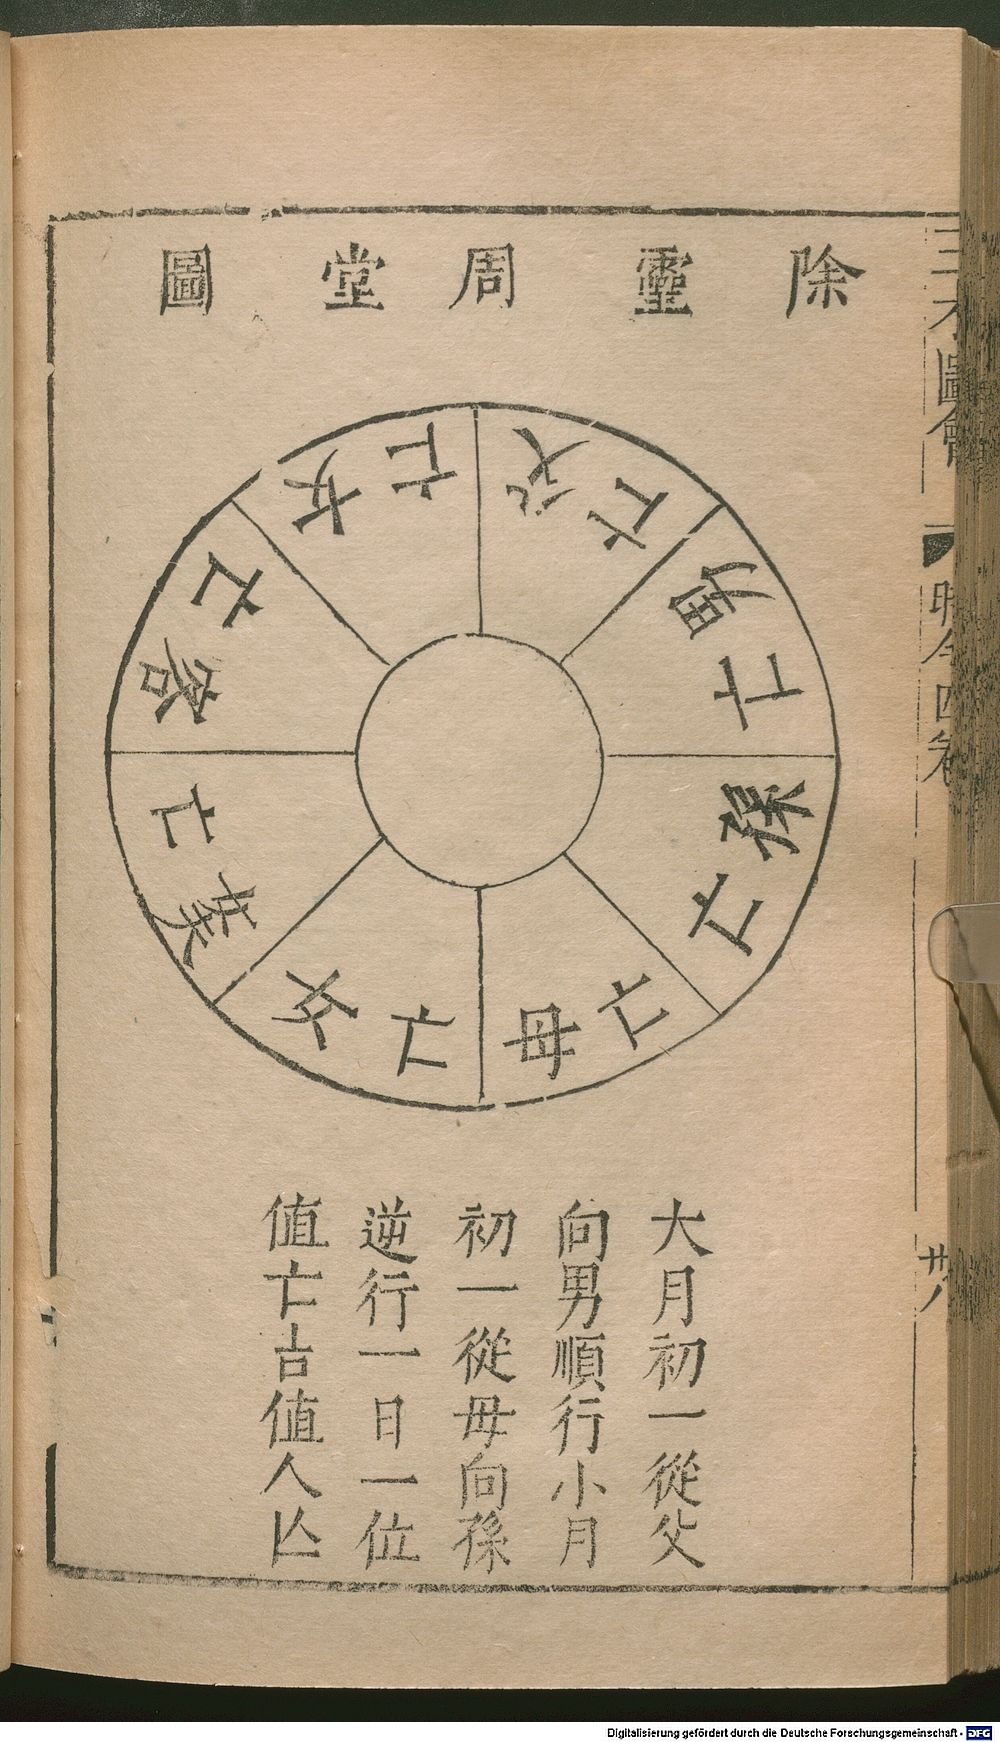 三才圖會
時令四卷
廿八
除靈周堂圖
父亡
男亡
孫亡
母亡
女亡
亡
客亡
女亡
大月初一從父
向男順行小月
初一從母向孫
逆行一日一位
值亡吉值人亾
Digitalisierung gefördert durch die Deutsche Forschungsgemeinschaft - DFG